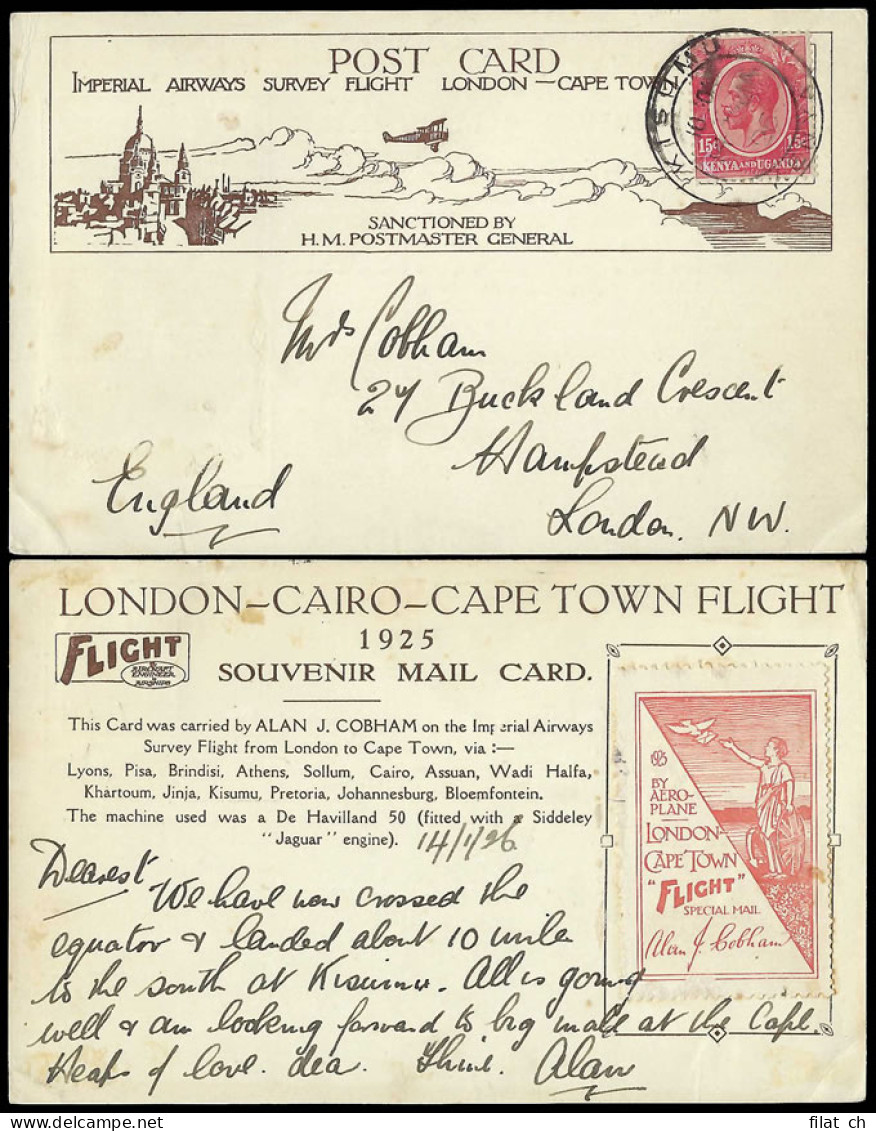 POST CARD
IMPERIAL AIRWAYS SURVEY FLIGHT LONDON—CAPE TOWN
KISUMU
15c 15c
KENYA AND UGANDA
SANCTIONED BY
H.M. POSTMASTER GENERAL
Mrs Cobham
24 Buckland Crescent
Hampstead
England
London. NW.
LONDON–CAIRO–CAPE TOWN FLIGHT
1925
FLIGHT
& AIRCRAFT
ENGINEER
& AIRSHIPS
SOUVENIR MAIL CARD.
This Card was carried by ALAN J. COBHAM on the Imperial Airways
Survey Flight from London to Cape Town, via :—
Lyons, Pisa, Brindisi, Athens, Sollum, Cairo, Assuan, Wadi Halfa,
Khartoum, Jinja, Kisumu, Pretoria, Johannesburg, Bloemfontein.
The machine used was a De Havilland 50 (fitted with a Siddeley
"Jaguar" engine).
14/1/26
1925
BY
AERO-
PLANE
LONDON-
CAPE TOWN
"FLIGHT"
SPECIAL MAIL
Alan J. Cobham
Dearest
We have now crossed the
equator & landed about 10 mile
to the south at Kisumu. All is going
well & am looking forward to big mail at the Cape.
Heaps of love. dea. Thine. Alan
filat ch